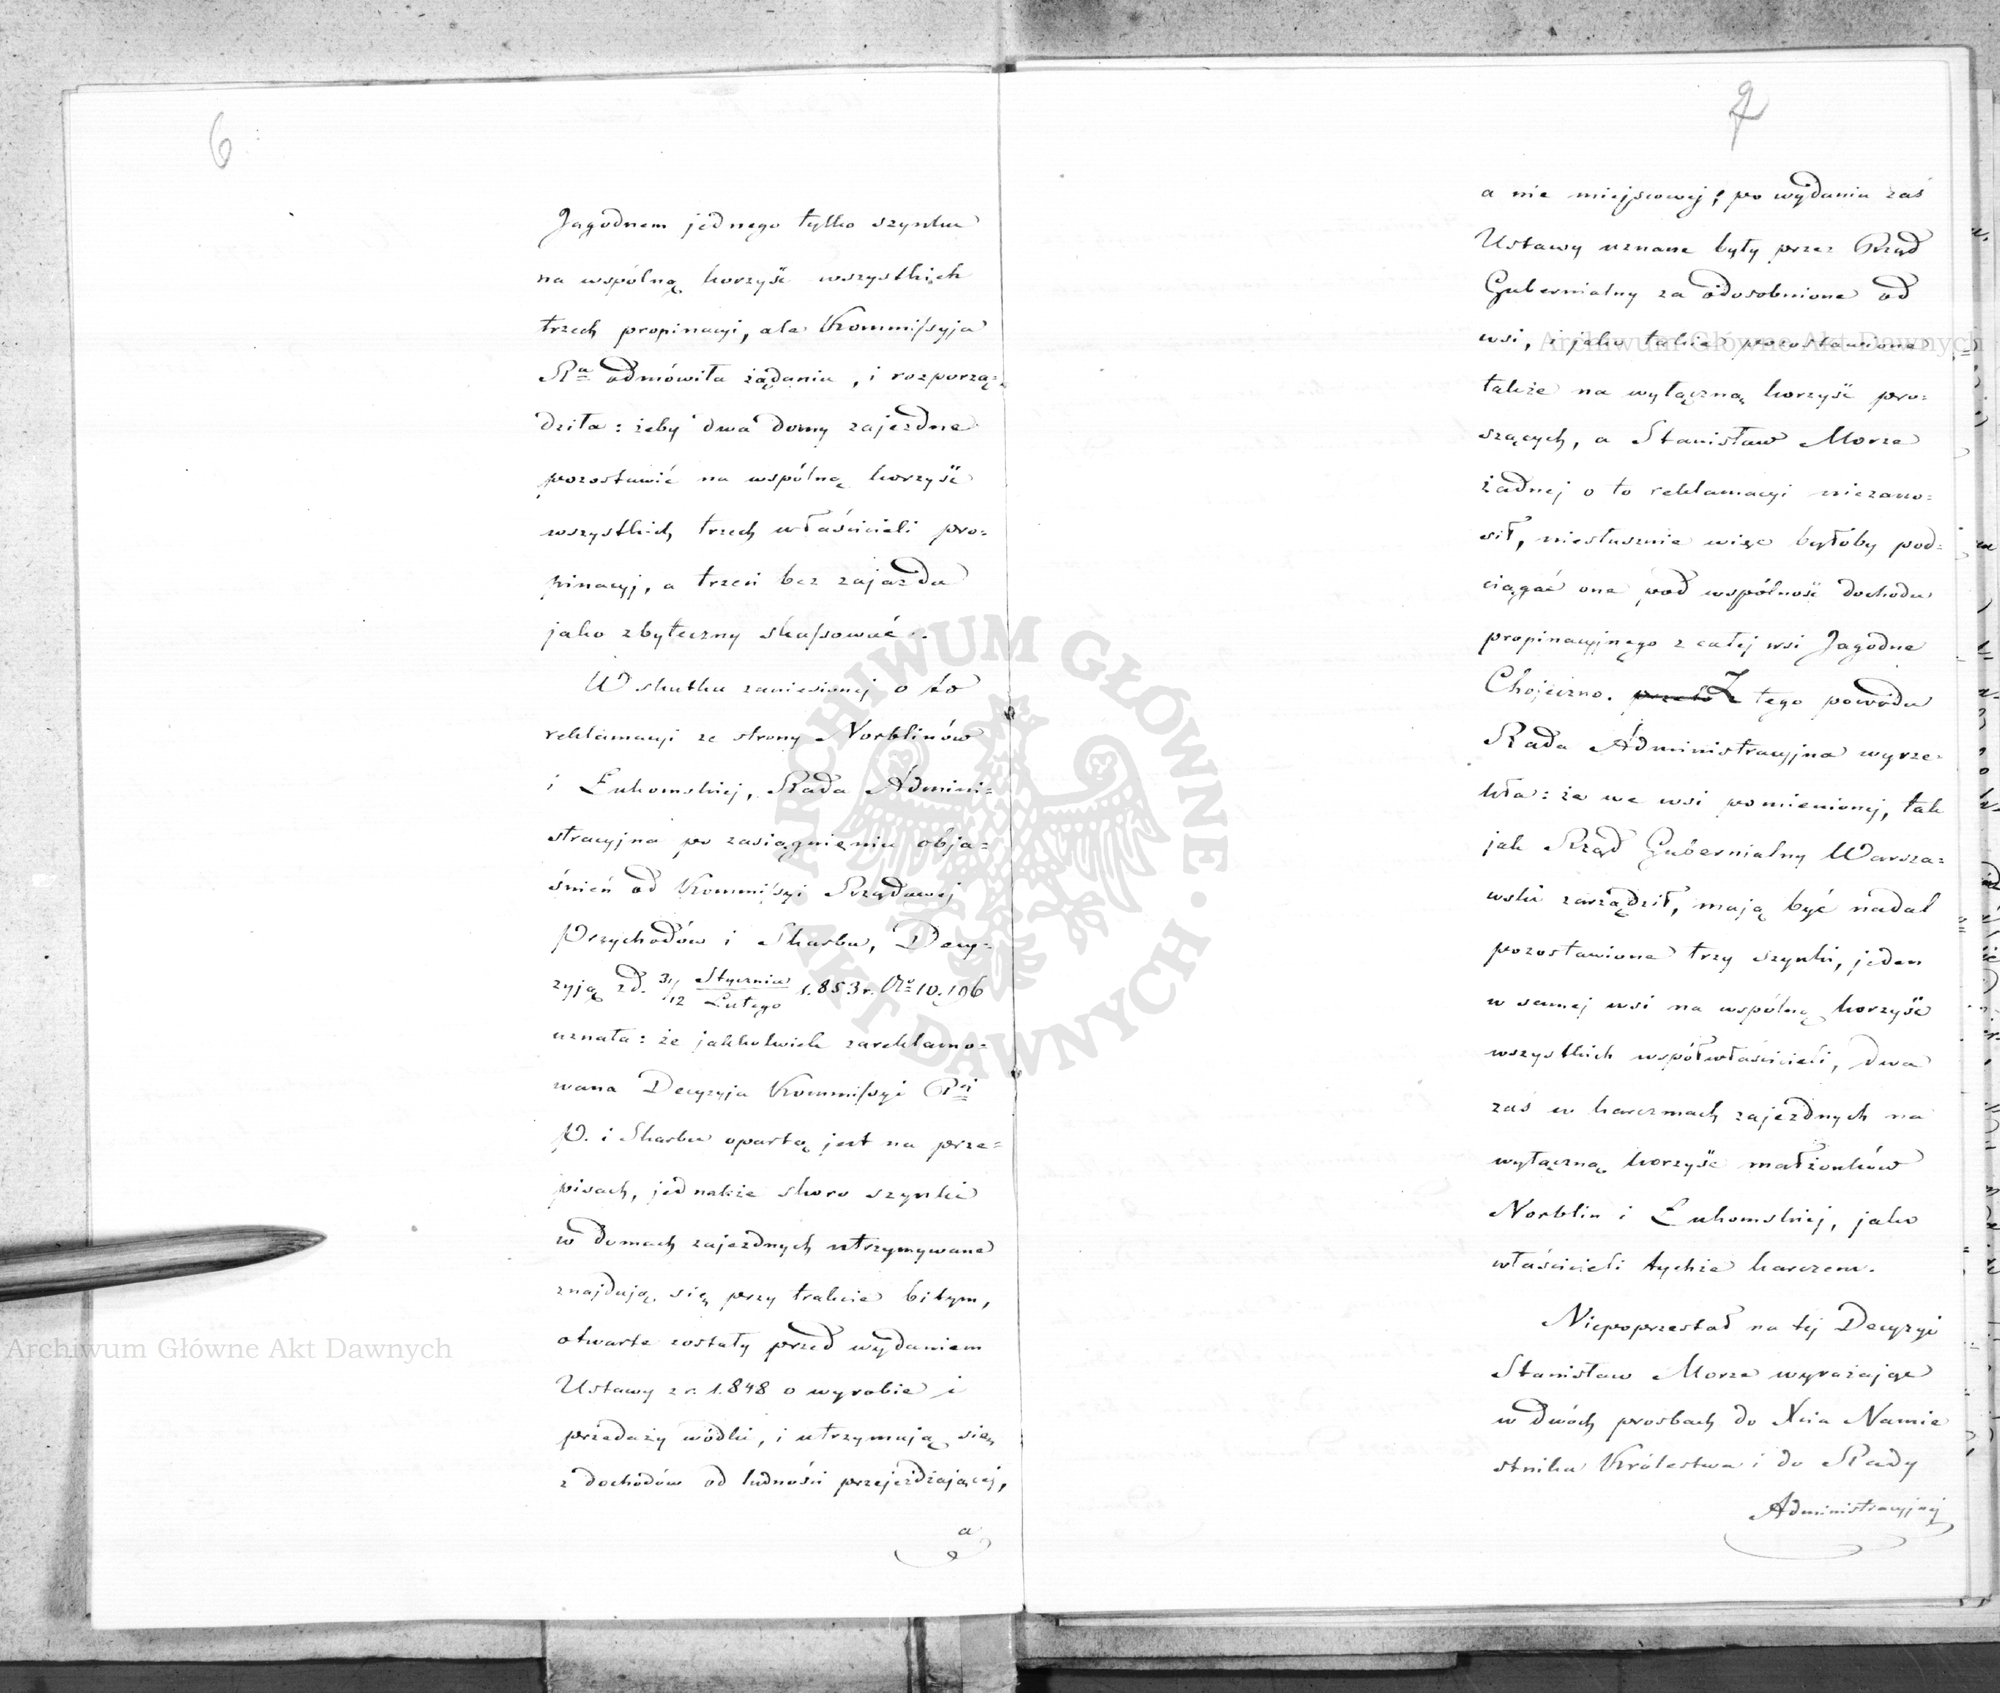 6
Jagodnem jednego tylko szynku
na wspólną korzyść wszystkich
trzech propinacyi, ale Kommissyja
Rza odmówiła żądaniu, i rozporzą=
dziła: żeby dwa domy zajezdne
pozostawić na wspólną korzyść
wszystkich trzech właścicieli pro=
pinacyj, a trzeci bez zajazdu
jako zbyteczny skassować.
W skutku zaniesionej o to
reklamacyi ze strony Norblinów
i Łukomskiej, Rada Admini=
stracyjna po zasiągnięniu obja=
śnień od Kommissyi Rządowej
Przychodów i Skarbu, Decy=
zyją z d. 31/12 Stycznia/Lutego 1.853 r. No 10.196
uznała: że jakkolwiek zareklamo=
wana Decyzyja Kommissyi Rei
P. i Skarbu opartą jest na prze=
pisach, jednakże skoro szynki
w domach zajezdnych utrzymywane
znajdują się przy trakcie bitym,
otwarte zostały przed wydaniem
Ustawy z r. 1.848 o wyrobie i
przedaży wódki, i utrzymują się
z dochodów od ludności przejeżdżającej,
a
7
a nie miejscowej; po wydaniu zaś
Ustawy uznane były przez Rząd
Gubernialny za odosobnione od
wsi, i jako takie pozostawione
także na wyłączną korzyść pro=
szących, a Stanisław Morze
żadnej o to reklamacyi niezano=
sił, niesłusznie więc byłoby pod=
ciągać one pod wspólność dochodu
propinacyjnego z całej wsi Jagodne
Chojeczno. przeto Z tego powodu
Rada Administracyjna wyrze=
kła: że we wsi pomienionej, tak
jak Rząd Gubernialny Warsza=
wski zarządził, mają być nadal
pozostawione trzy szynki, jeden
w samej wsi na wspólną korzyść
wszystkich współwłaścicieli, dwa
zaś w karczmach zajezdnych na
wyłączną korzyść małżonków
Norblin i Łukomskiej, jako
właścicieli tychże karczem.
Niepoprzestał na tej Decyzyi
Stanisław Morze wyrażając
w dwóch prośbach do Xcia Namie
stnika Królestwa i do Rady
Administracyjnej
Archiwum Główne Akt Dawnych
Archiwum Główne Akt Dawnych
ARCHIWUM GŁÓWNE AKT DAWNYCH